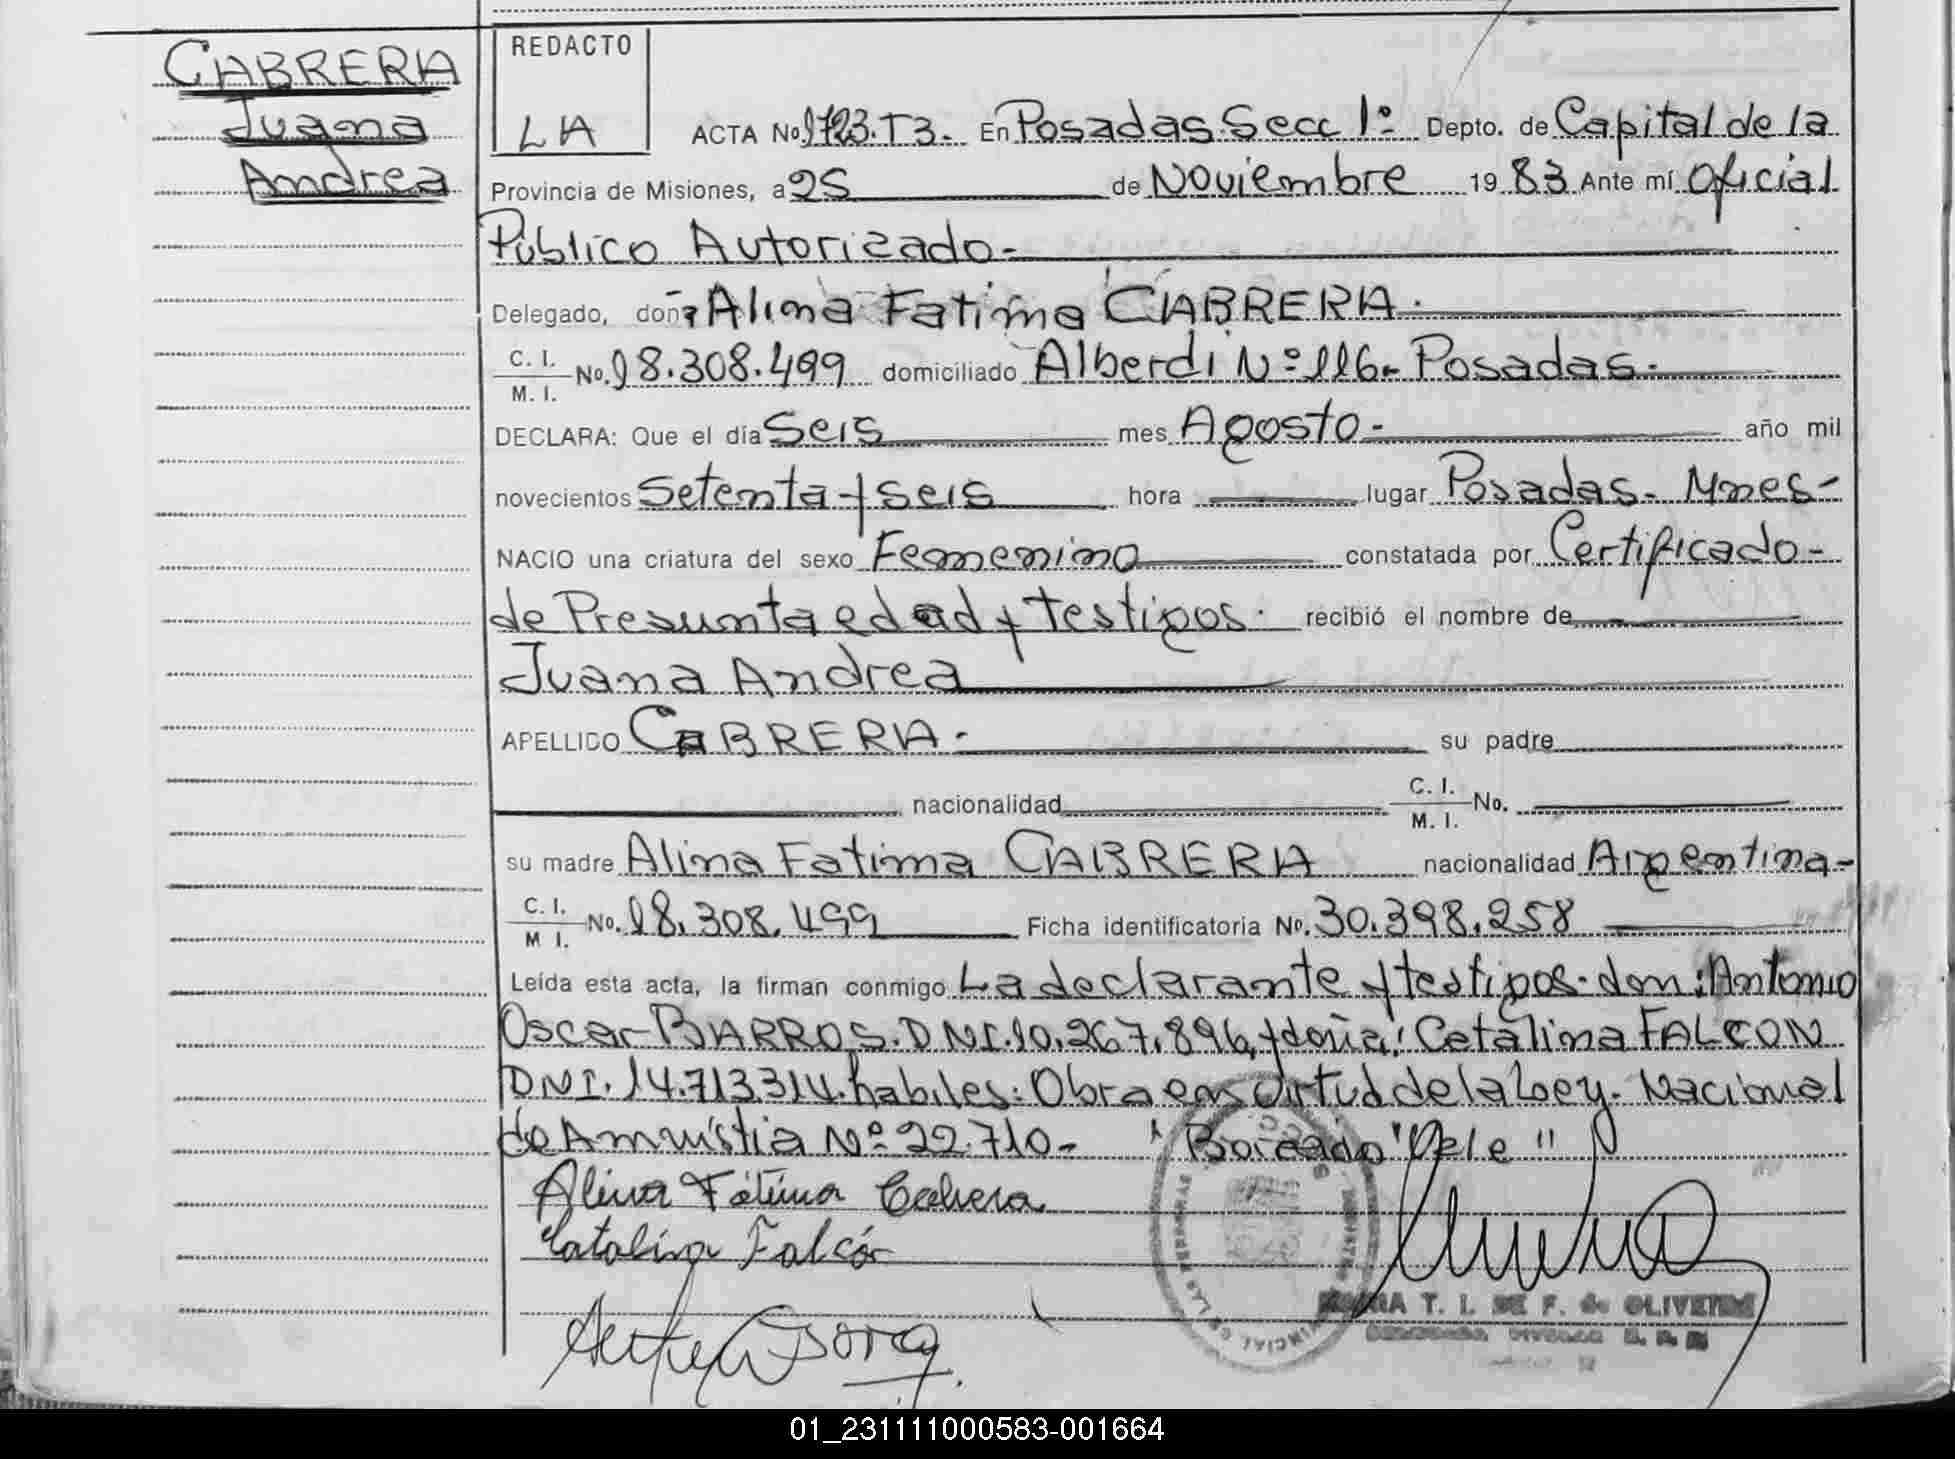 CABRERA
Juana
Andrea
REDACTO
LA
ACTA No. 1723.T3.- En Posadas. Secc 1º Depto. de Capital de la
Provincia de Misiones, a 25 de Noviembre 1983 Ante mí Oficial
Público Autorizado.-
Delegado, doña Alina Fatima CABRERA.
C. I. M. I. No. 18.308.499 domiciliado Alberdi Nº 116.- Posadas.-
DECLARA: Que el día Seis mes Agosto.- año mil
novecientos Setenta y Seis hora lugar Posadas. Mnes-
NACIO una criatura del sexo Femenino constatada por Certificado-
de Presunta edad y testigos. recibió el nombre de
Juana Andrea
APELLIDO CABRERA. su padre
nacionalidad C. I. M. I. No.
su madre Alina Fatima CABRERA nacionalidad Argentina-
C. I. M I. No. 18.308.499 Ficha identificatoria No. 30.398.258
Leída esta acta, la firman conmigo La declarante y testigos. don: Antonio
Oscar BARROS. DNI. 10.267.896, y doña: Catalina FALCON
DNI. 14.713.314. habiles: Obra en virtud de la Ley. Nacional
de Amnistia Nº 22.710- "Borrado" Vale"
Alina Fátima Cabrera
Catalina Falcón
T. I. DE F. de OLIVEIRA
01_231111000583-001664